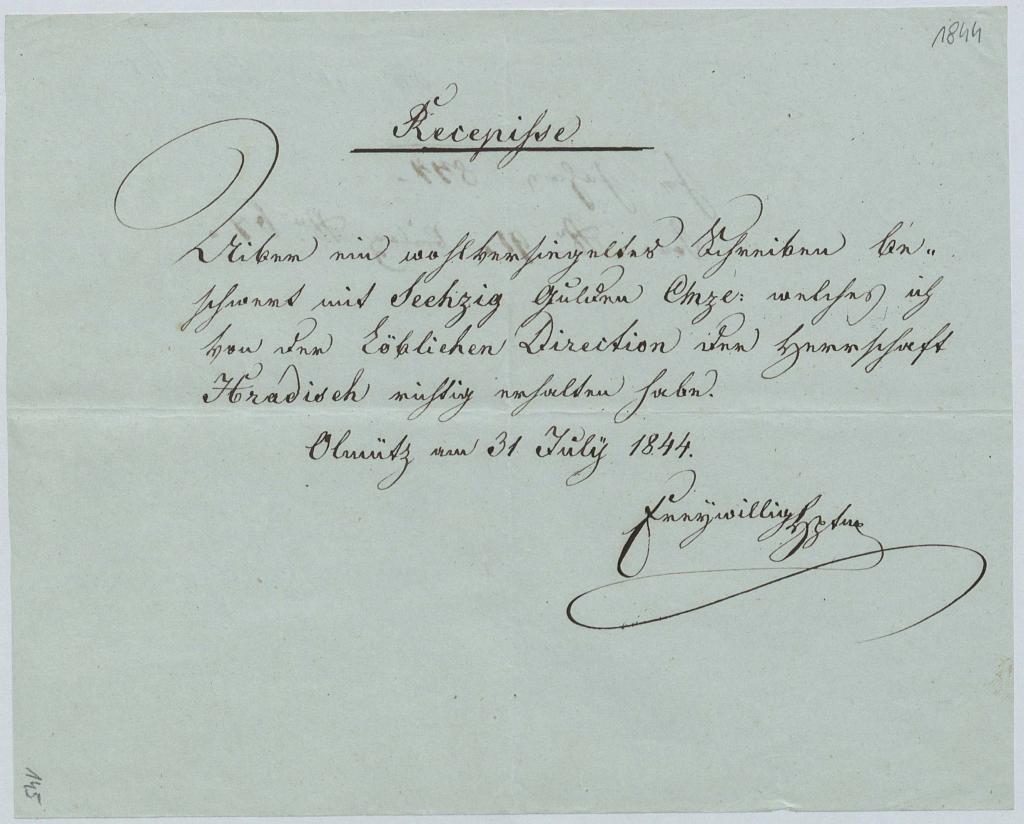 1844
Recepisse
Uiber ein wohlversiegeltes Schreiben be„
schwert mit Sechzig Gulden Cmze: welches ich
von der Löblichen Direction der Herrschaft
Hradisch richtig erhalten habe.
Olmütz am 31 July 1844.
Freywillig Hptm
145